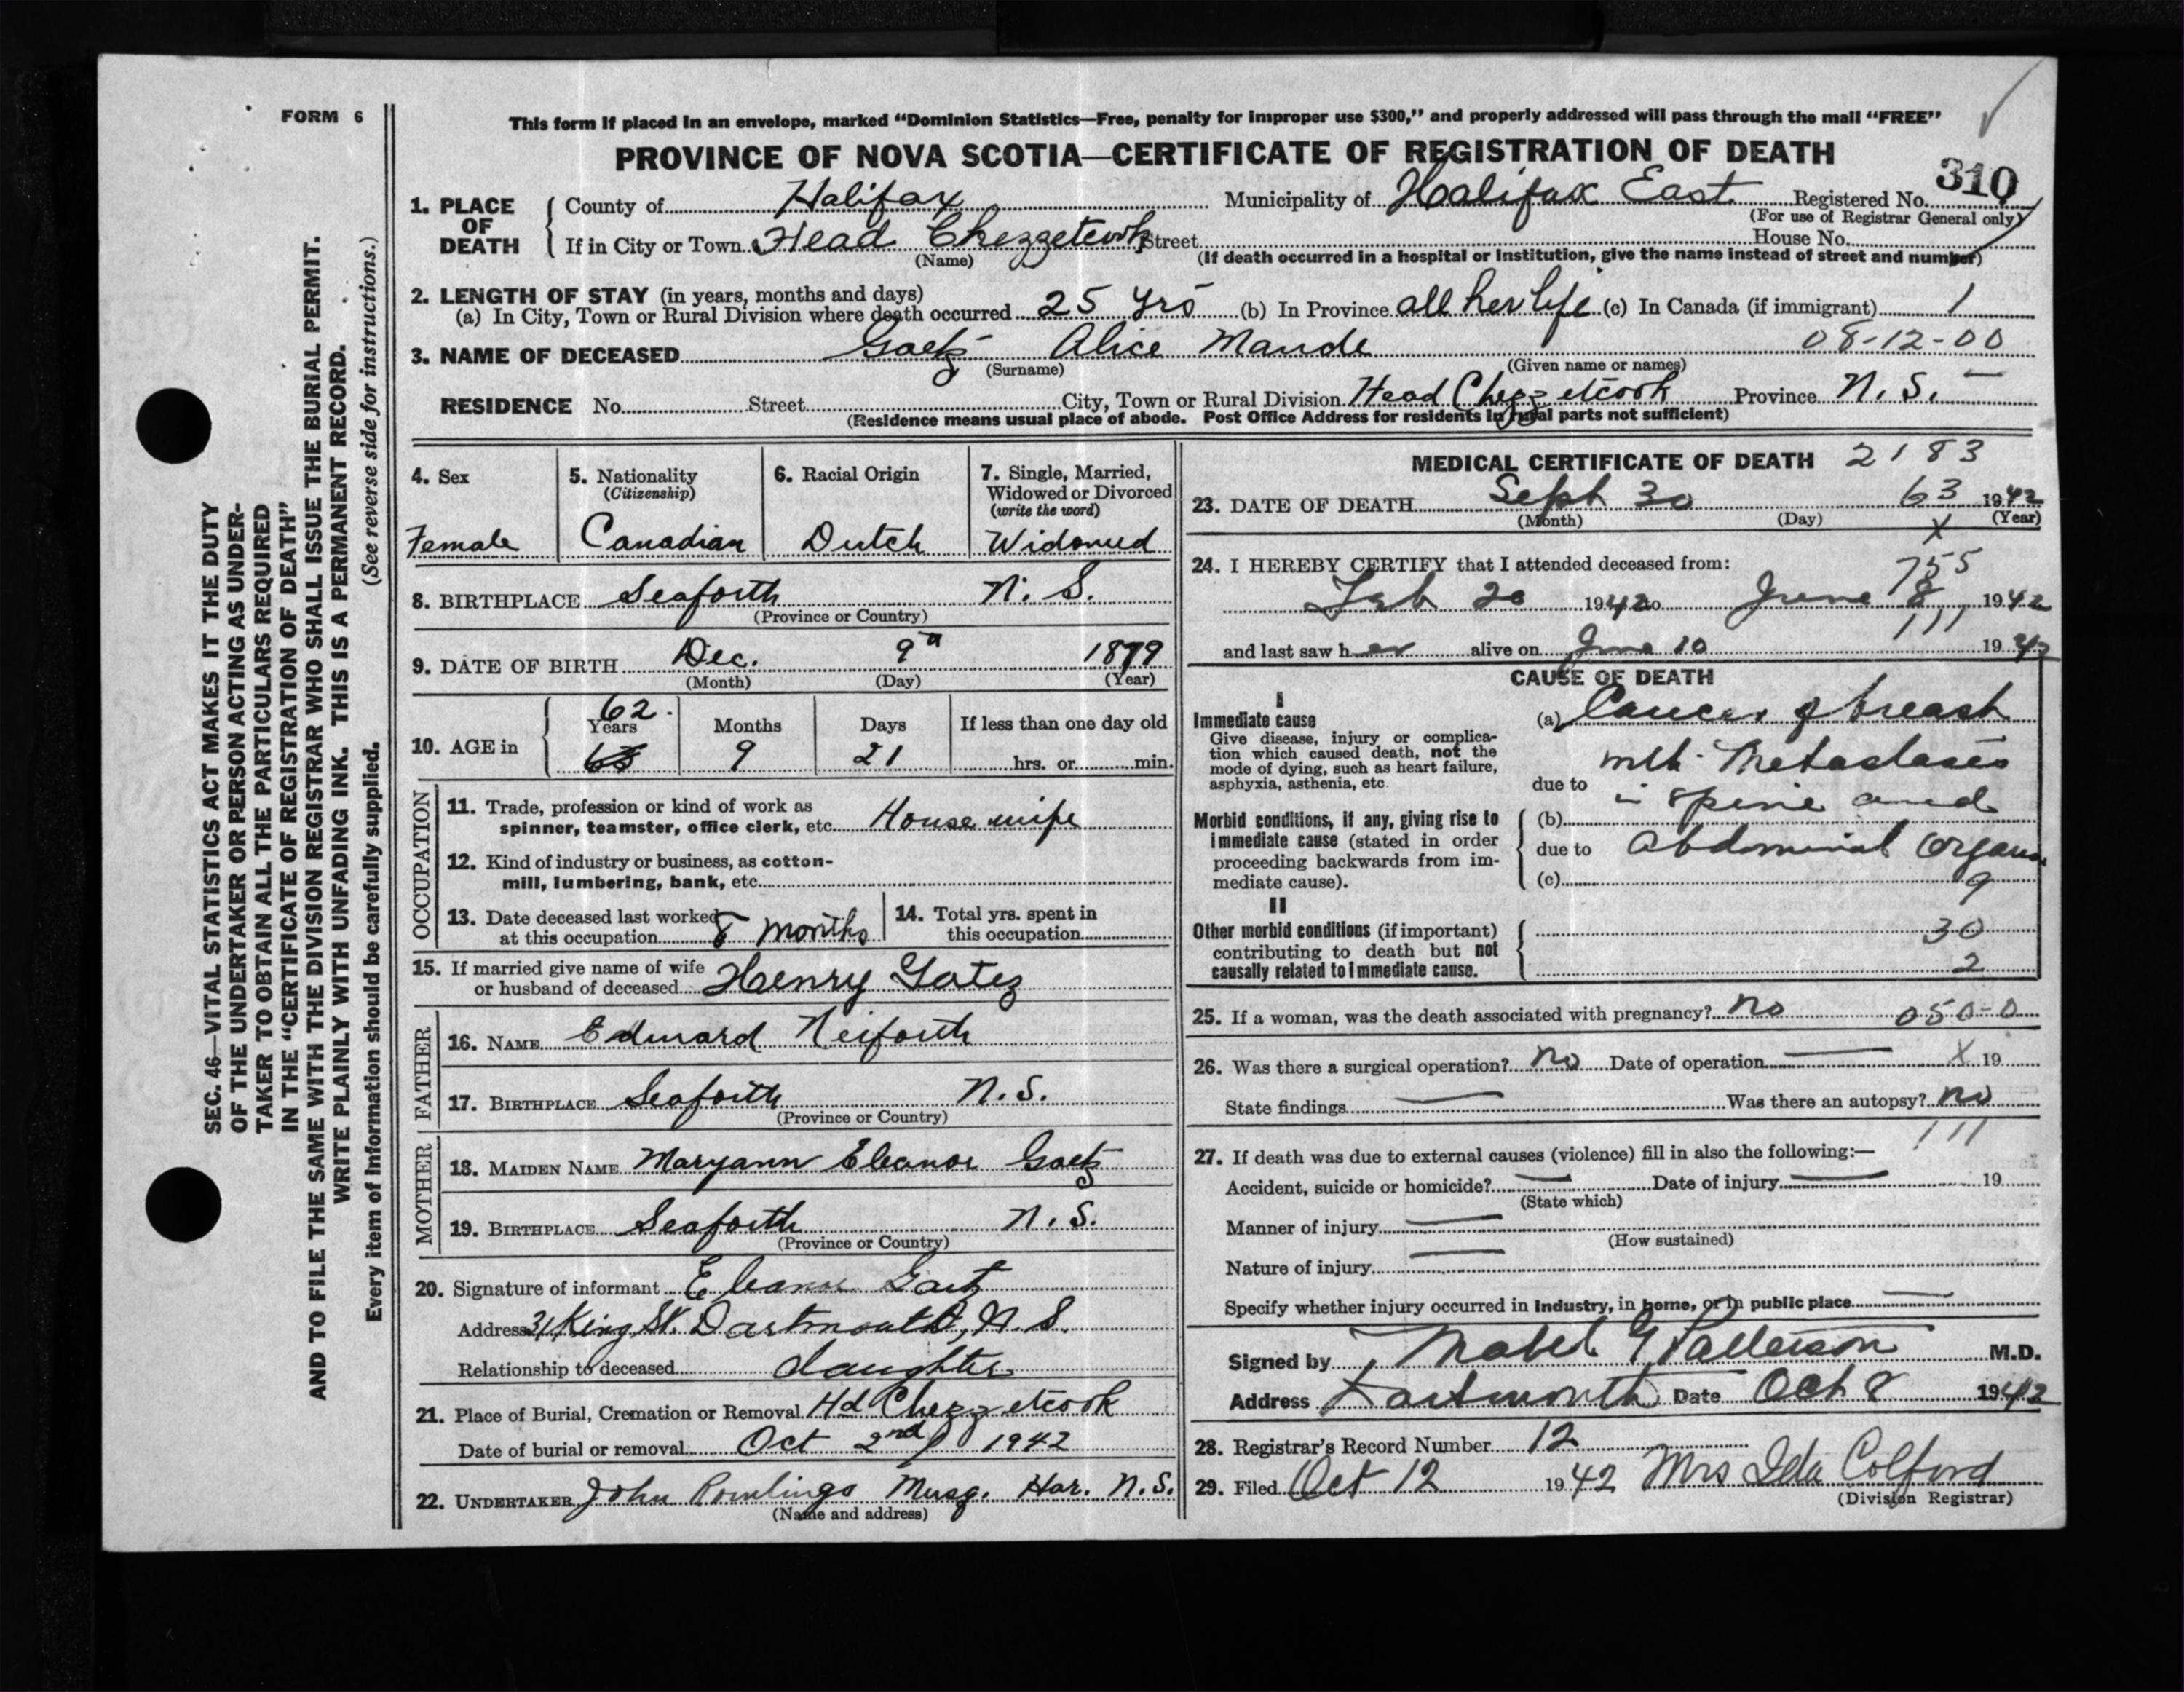 FORM 6
This form if placed in an envelope, marked “Dominion Statistics—Free, penalty for improper use $300,” and properly addressed will pass through the mail “FREE”
PROVINCE OF NOVA SCOTIA—CERTIFICATE OF REGISTRATION OF DEATH
310
1. PLACE OF DEATH
County of Halifax Municipality of Halifax East Registered No.
(For use of Registrar General only)
If in City or Town Head Chezzetcook Street House No.
(Name) (If death occurred in a hospital or institution, give the name instead of street and number)
2. LENGTH OF STAY (in years, months and days)
(a) In City, Town or Rural Division where death occurred 25 yrs (b) In Province all her life (c) In Canada (if immigrant) 1
3. NAME OF DECEASED Gaetz Alice Maude 08-12-00
(Surname) (Given name or names)
RESIDENCE No. Street City, Town or Rural Division Head Chezzetcook Province N. S.
(Residence means usual place of abode. Post Office Address for residents in rural parts not sufficient)
4. Sex
Female
5. Nationality
(Citizenship)
Canadian
6. Racial Origin
Dutch
7. Single, Married,
Widowed or Divorced
(write the word)
Widowed
8. BIRTHPLACE Seaforth N. S.
(Province or Country)
9. DATE OF BIRTH Dec. 9th 1879
(Month) (Day) (Year)
10. AGE in
62
Years Months Days If less than one day old
63 9 21 hrs. or min.
OCCUPATION
11. Trade, profession or kind of work as
spinner, teamster, office clerk, etc. House wife
12. Kind of industry or business, as cotton-
mill, lumbering, bank, etc.
13. Date deceased last worked
at this occupation 8 months
14. Total yrs. spent in
this occupation
15. If married give name of wife
or husband of deceased Henry Gatez
FATHER
16. NAME Edward Neiforth
17. BIRTHPLACE Seaforth N.S.
(Province or Country)
MOTHER
18. MAIDEN NAME Maryann Eleanor Gaetz
19. BIRTHPLACE Seaforth N. S.
(Province or Country)
20. Signature of informant Eleanor Gaetz
Address 31 King St. Dartmouth, N. S.
Relationship to deceased daughter
21. Place of Burial, Cremation or Removal Hd Chezzetcook
Date of burial or removal Oct 2nd 1942
22. UNDERTAKER John Rowlings Musq. Har. N.S.
(Name and address)
MEDICAL CERTIFICATE OF DEATH 2183
23. DATE OF DEATH Sept 30 63 1942
(Month) (Day) (Year)
X
24. I HEREBY CERTIFY that I attended deceased from:
755
Feb 20 1942 to June 8 1942
111
and last saw h er alive on June 10 1942
CAUSE OF DEATH
I
Immediate cause
Give disease, injury or complica-
tion which caused death, not the
mode of dying, such as heart failure,
asphyxia, asthenia, etc.
(a) Cancer of breast
with Metastases
due to
in spine and
Morbid conditions, if any, giving rise to
immediate cause (stated in order
proceeding backwards from im-
mediate cause).
(b)
due to Abdominal Organs
(c) 9
II
Other morbid conditions (if important)
contributing to death but not
causally related to immediate cause.
30
2
25. If a woman, was the death associated with pregnancy? no 050-0
26. Was there a surgical operation? no Date of operation — X 19
State findings — Was there an autopsy? no
111
27. If death was due to external causes (violence) fill in also the following:—
Accident, suicide or homicide? — Date of injury — 19
(State which)
Manner of injury —
(How sustained)
Nature of injury —
Specify whether injury occurred in industry, in home, or in public place —
Signed by Mabel G Patterson M.D.
Address Dartmouth Date Oct 8 1942
28. Registrar's Record Number 12
29. Filed Oct 12 1942 Mrs Ida Colford
(Division Registrar)
SEC. 46—VITAL STATISTICS ACT MAKES IT THE DUTY
OF THE UNDERTAKER OR PERSON ACTING AS UNDER-
TAKER TO OBTAIN ALL THE PARTICULARS REQUIRED
IN THE “CERTIFICATE OF REGISTRATION OF DEATH”
AND TO FILE THE SAME WITH THE DIVISION REGISTRAR WHO SHALL ISSUE THE BURIAL PERMIT.
WRITE PLAINLY WITH UNFADING INK. THIS IS A PERMANENT RECORD.
Every item of information should be carefully supplied. (See reverse side for instructions.)